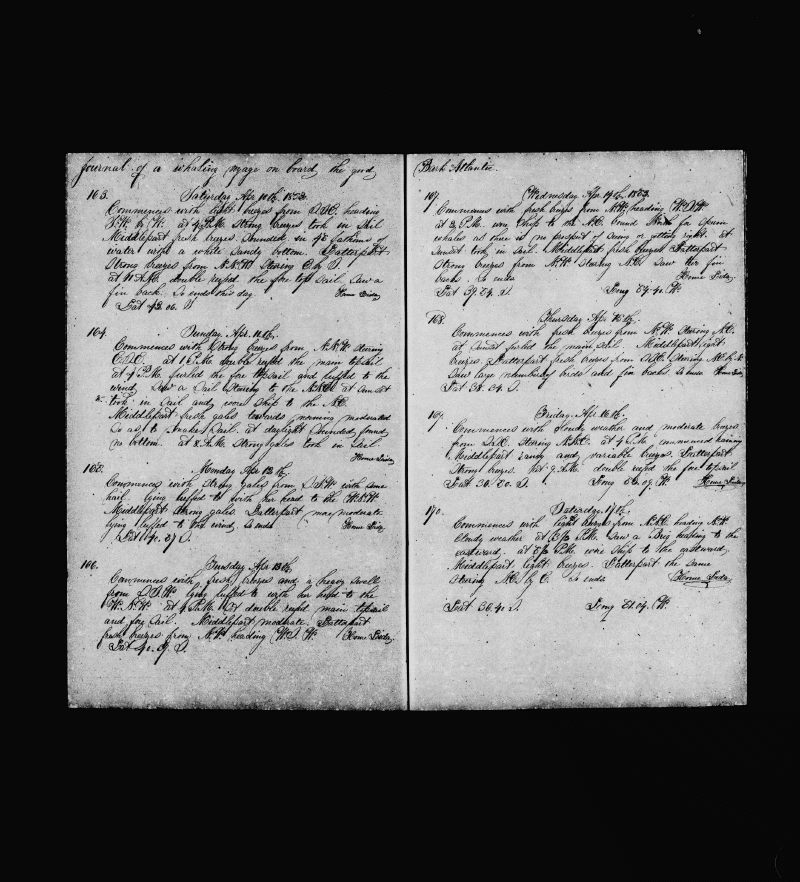 Journal of a whaling voyage on board the good
163. Saturday Apr. 10th. 1853.
Commences with light breezes from heading
S.W. by W. at 4 P.M. strong breezes took in sail
Middlepart fresh breezes. Sounded in 45 fathoms of
water with a white sandy bottom. Latterpart
strong breezes from N.N.W. Steering E by S.
at 11 A.M. double reefed the fore top sail. Saw a
fin back. So ends this day.
Lat 42. 06. S
164. Sunday. Apr. 11th.
Commences with strong breezes from N.N.W. steering
at 1 P.M. double reefed the main topsail
at 4 P.M. furled the fore topsail and luffed to the
wind, Saw a Sail steering to the at sunset
took in Sail and wore ship to the
Middlepart fresh gales towards morning moderated
so as to make Sail. at daylight sounded, found
no bottom. at 8 A.M. strong gales took in sail
165. Monday Apr. 12th.
Commences with strong gales from S.S.W. with some
hail. lying luffed to with her head to the W.S.W.
Middlepart strong gales. Latterpart more moderate
lying luffed to the wind, So ends
Lat 40. 27 S.
166. Tuesday Apr. 13th.
Commences with fresh breezes and a heavy swell
from S.S.W. lying luffed to with her head to the
W.N.W. at 4 P.M. set double reefed main topsail
and fore sail. Middlepart moderate. Latterpart
fresh breezes from N.W. heading W.S.W.
Lat 40. 09. S.
Bark Atlantic.
167. Wednesday Apr. 14th. 1853.
Commences with fresh breezes from N.W. heading W.S.W.
at 3 P.M. wore ship to the N.E. bound North for sperm
whales as there is no prospect of seeing or getting right. at
sunset took in sail. Middlepart fresh breezes Latterpart
strong breezes from N.W. steering N.E. Saw two fin
backs. So ends
Lat 39. 24. S. Long 54. 40. W.
168. Thursday Apr. 15th.
Commences with fresh breezes from N.W. Steering N.E.
at sunset furled the main sail. Middlepart light
breezes. Latterpart fresh breezes from Steering N.E. by N.
Saw large number of birds and fin backs So ends
Lat 38. 34. S.
169. Friday. Apr 16th.
Commences with cloudy weather and moderate breezes
from steering at 4 P.M. commenced raining
Middlepart rainy and variable breezes. Latterpart
strong breezes. At 9 A.M. double reefed the fore topsail
Lat 36. 50. S. Long 52. 09. W.
170. Saturday. 17th.
Commences with light breezes from heading N.W.
Cloudy weather at P.M. Saw a Brig heading to the
eastward. at P.M. wore ship to the eastward.
Middlepart light breezes. Latterpart the same
Steering N.E. by E. So ends
Lat 36. 40 S. Long 51. 09. W.